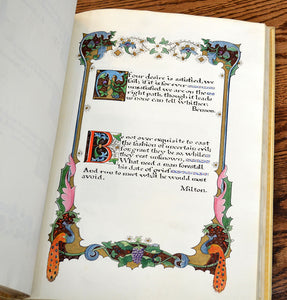 our desire is satisfied, we
fail; if it is for ever
unsatisfied we are on the
right path, though it leads
us none can tell whither.
Benson.
Be not over exquisite to cast
the fashion of uncertain evil;
for grant they be so, while
they rest unknown,
What need a man forestall
his date of grief
And run to meet what he would most
avoid.
Milton.